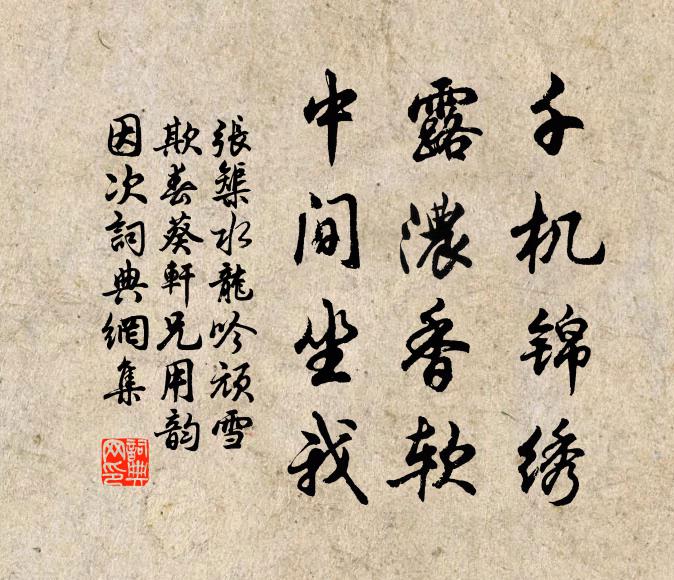 千机锦绣
露濃香软
中间坐我
張榘水龍吟頑雪
欺春葵軒兄用韵
因次詞典網集
詞典网印